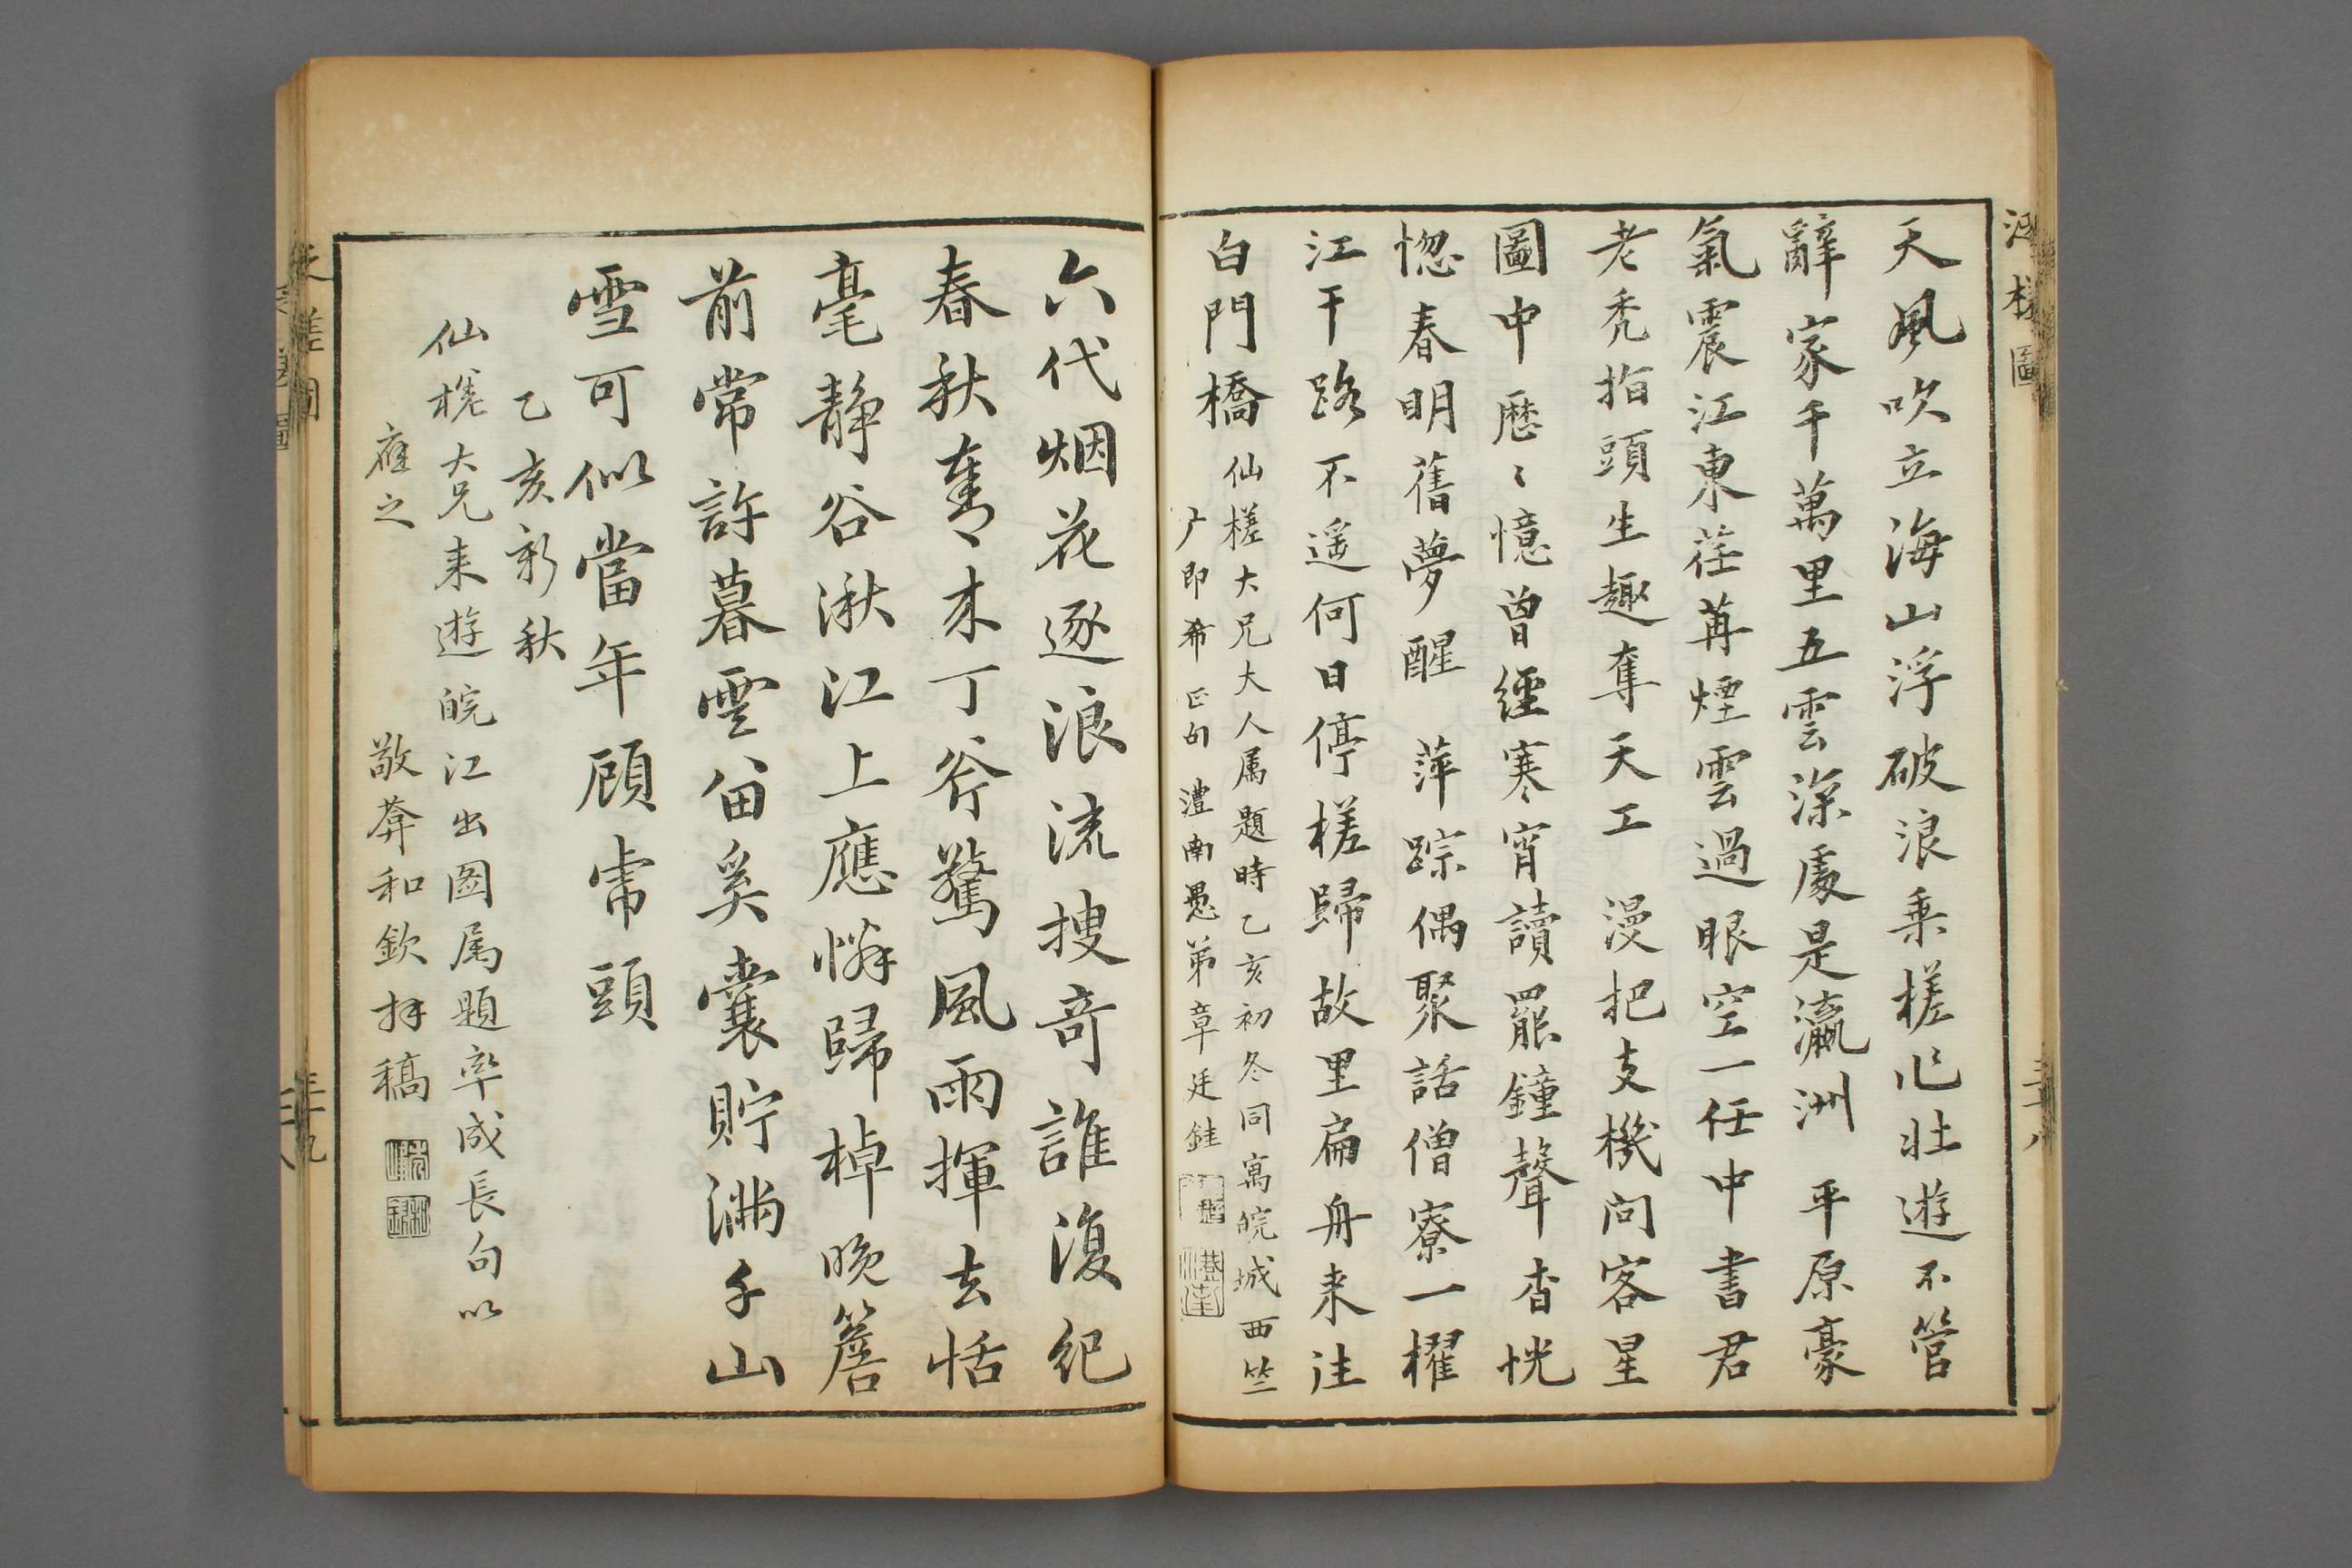 天風吹立海山浮破浪乘槎作壯遊不管
辭家千萬里五雲深處是瀛洲 平原豪
氣震江東荏苒煙雲過眼空一任中書君
老禿指頭生趣奪天工 漫把支機問客星
圖中歷〻憶曾經寒宵讀罷鐘聲杳恍
惚春明舊夢醒 萍踪偶聚話僧寮一櫂
江干路不遥何日停槎歸故里扁舟来往
白門橋 仙槎大兄大人属題時乙亥初冬同寓皖城西竺
广即希正句 澧南愚弟章廷
六代烟花逐浪流搜奇誰復紀
春秋青〻木丁斧驚風雨揮去恬
毫静谷湫江上應憐歸棹晚簷
前常許暮雲留奚囊貯滿千山
雪可似當年顧常頭
乙亥新秋
仙槎大兄来遊皖江出図属題率成長句以
應之
敬莽和欽拜稿
槎圖
三十八